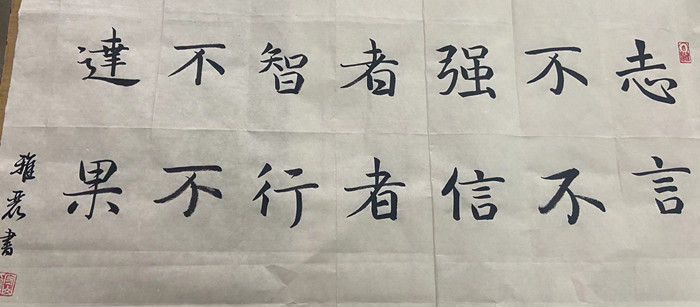 志不强者智不達
言不信者行不果
雅書